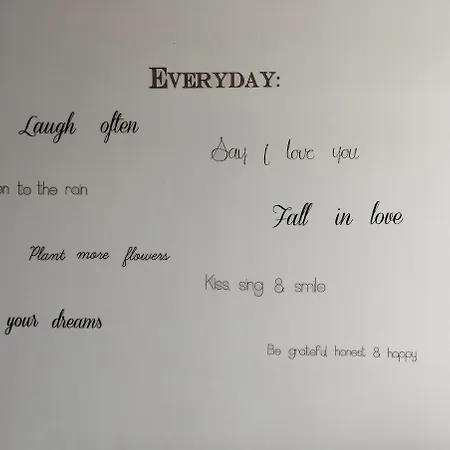 EVERYDAY:
Laugh often
Say I love you
en to the rain
Fall in love
Plant more flowers
Kiss, sing & smile
your dreams
Be grateful honest & happy